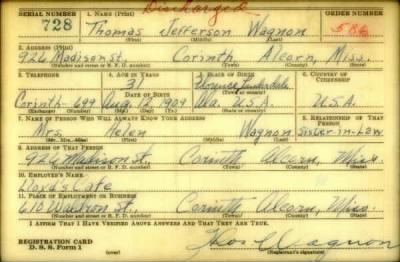 Discharged
SERIAL NUMBER 1. NAME (Print) ORDER NUMBER
728 Thomas Jefferson Wagnon 586
2. ADDRESS (Print)
926 Madison St. Corinth Alcorn, Miss.
(Number and street or R. F. D. number) (Town) (County) (State)
3. TELEPHONE 4. AGE IN YEARS 5. PLACE OF BIRTH 6. COUNTRY OF CITIZENSHIP
31 Florence Lauderdale
DATE OF BIRTH
Corinth-699 Aug. 12 1909 Ala. U.S.A. U.S.A.
7. NAME OF PERSON WHO WILL ALWAYS KNOW YOUR ADDRESS 8. RELATIONSHIP OF THAT PERSON
Mrs. Helen Wagnon Sister-in-Law
9. ADDRESS OF THAT PERSON
926 Madison St., Corinth Alcorn, Miss.
(Number and street or R. F. D. number) (Town) (County) (State)
10. EMPLOYER'S NAME
Cafe
11. PLACE OF EMPLOYMENT OR BUSINESS
610 St., Corinth Alcorn, Miss.
(Number and street or R. F. D. number) (Town) (County) (State)
I AFFIRM THAT I HAVE VERIFIED ABOVE ANSWERS AND THAT THEY ARE TRUE.
REGISTRATION CARD
D. S. S. Form 1 (over) Thos Wagnon
(Registrant's signature)